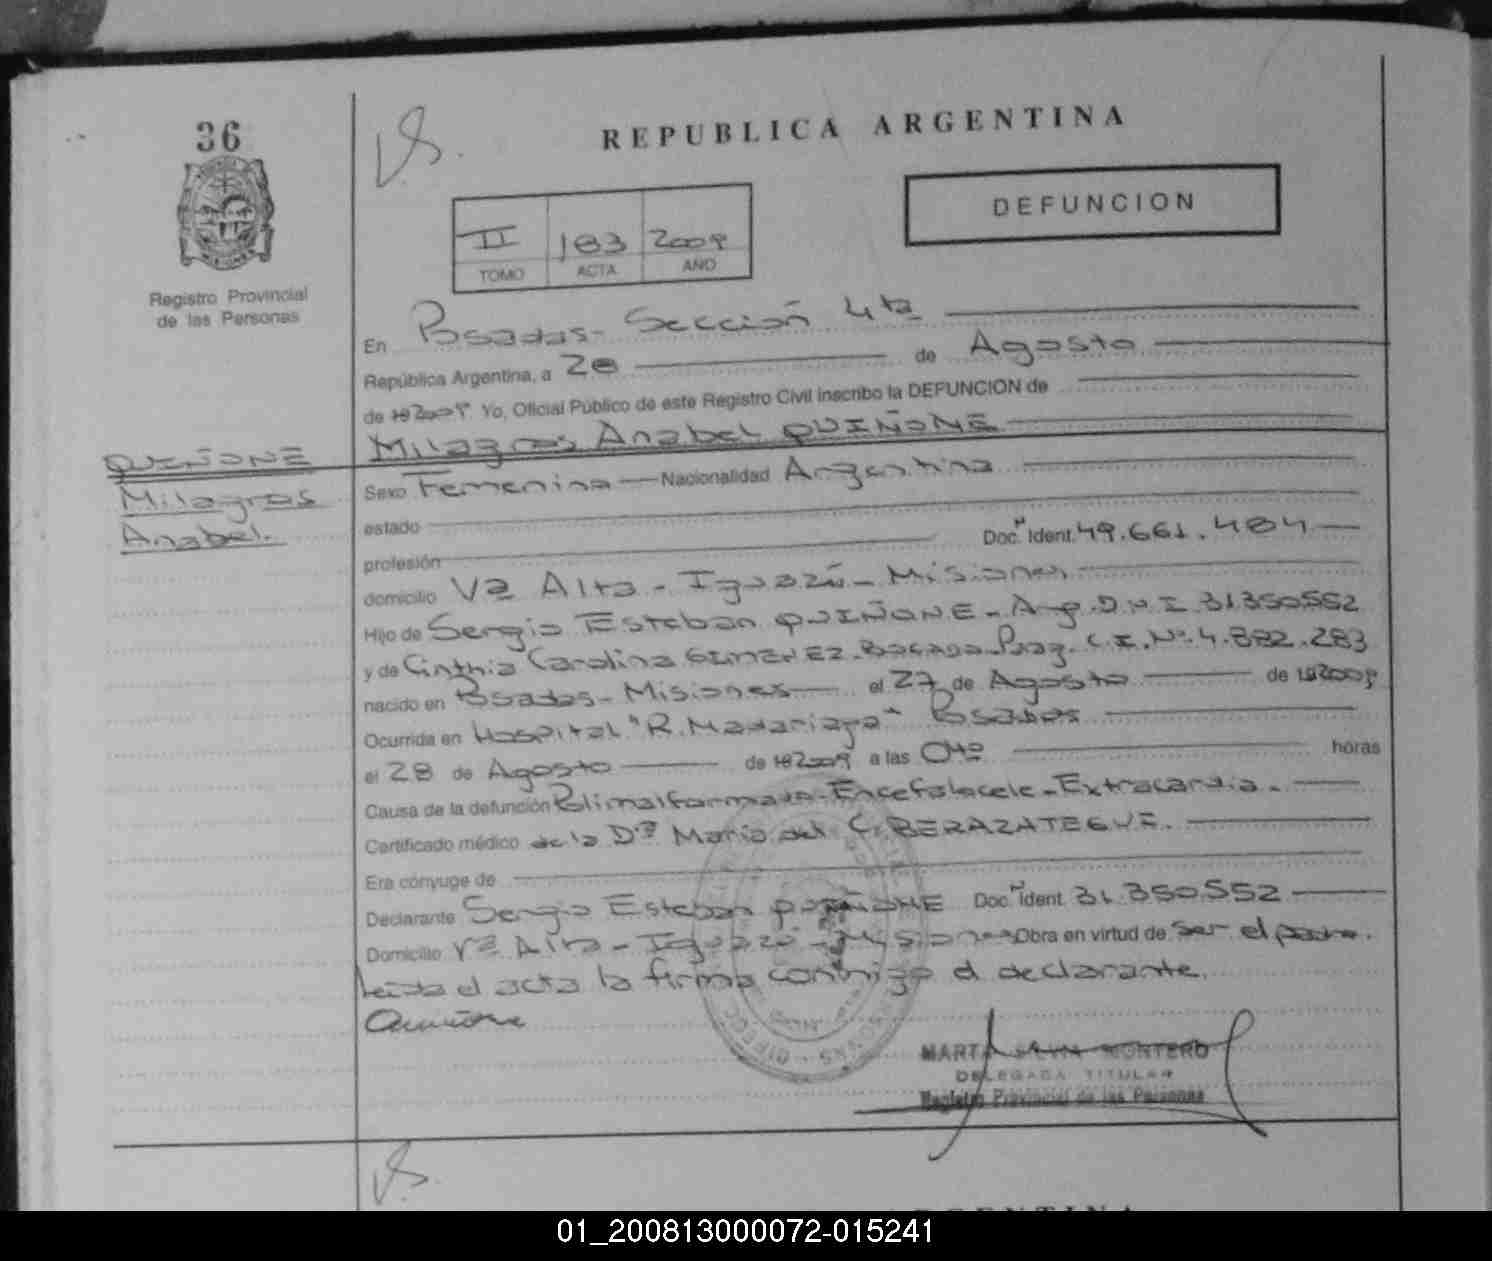 36
REPUBLICA ARGENTINA
DEFUNCION
II 183 2009
TOMO ACTA AÑO
Registro Provincial
de las Personas
En Posadas - Sección 4ta
República Argentina, a 28 de Agosto
de 19 2009. Yo, Oficial Público de este Registro Civil inscribo la DEFUNCION de
Milagros Anabel QUIÑONE
QUIÑONE
Milagros
Anabel.
Sexo Femenina Nacionalidad Argentina
estado
profesión Doc. N Ident. 49.661.484
domicilio Va Alta - Iguazú - Misiones
Hijo de Sergio Esteban QUIÑONE - Arg. D.N.I. 31350552
y de Cinthia Carolina GIMENEZ Parag. C.I. Nº 4.882.283
nacido en Posadas - Misiones el 27 de Agosto de 19 2009
Ocurrida en Hospital "R. Madariaga" Posadas
el 28 de Agosto de 19 2009 a las 04º horas
Causa de la defunción Polimalformado - Encefalocele - Extracardia.
Certificado médico de la Dra María del C. BERAZATEGUI.
Era cónyuge de
Declarante Sergio Esteban QUIÑONE Doc. N Ident. 31.350.552
Domicilio Va Alta - Iguazú - Misiones Obra en virtud de ser el padre.
Leida el acta la firma conmigo el declarante.
Quiñone
MARTA MONTERO
DELEGADA TITULAR
Registro Provincial de las Personas
ARGENTINA
01_200813000072-015241